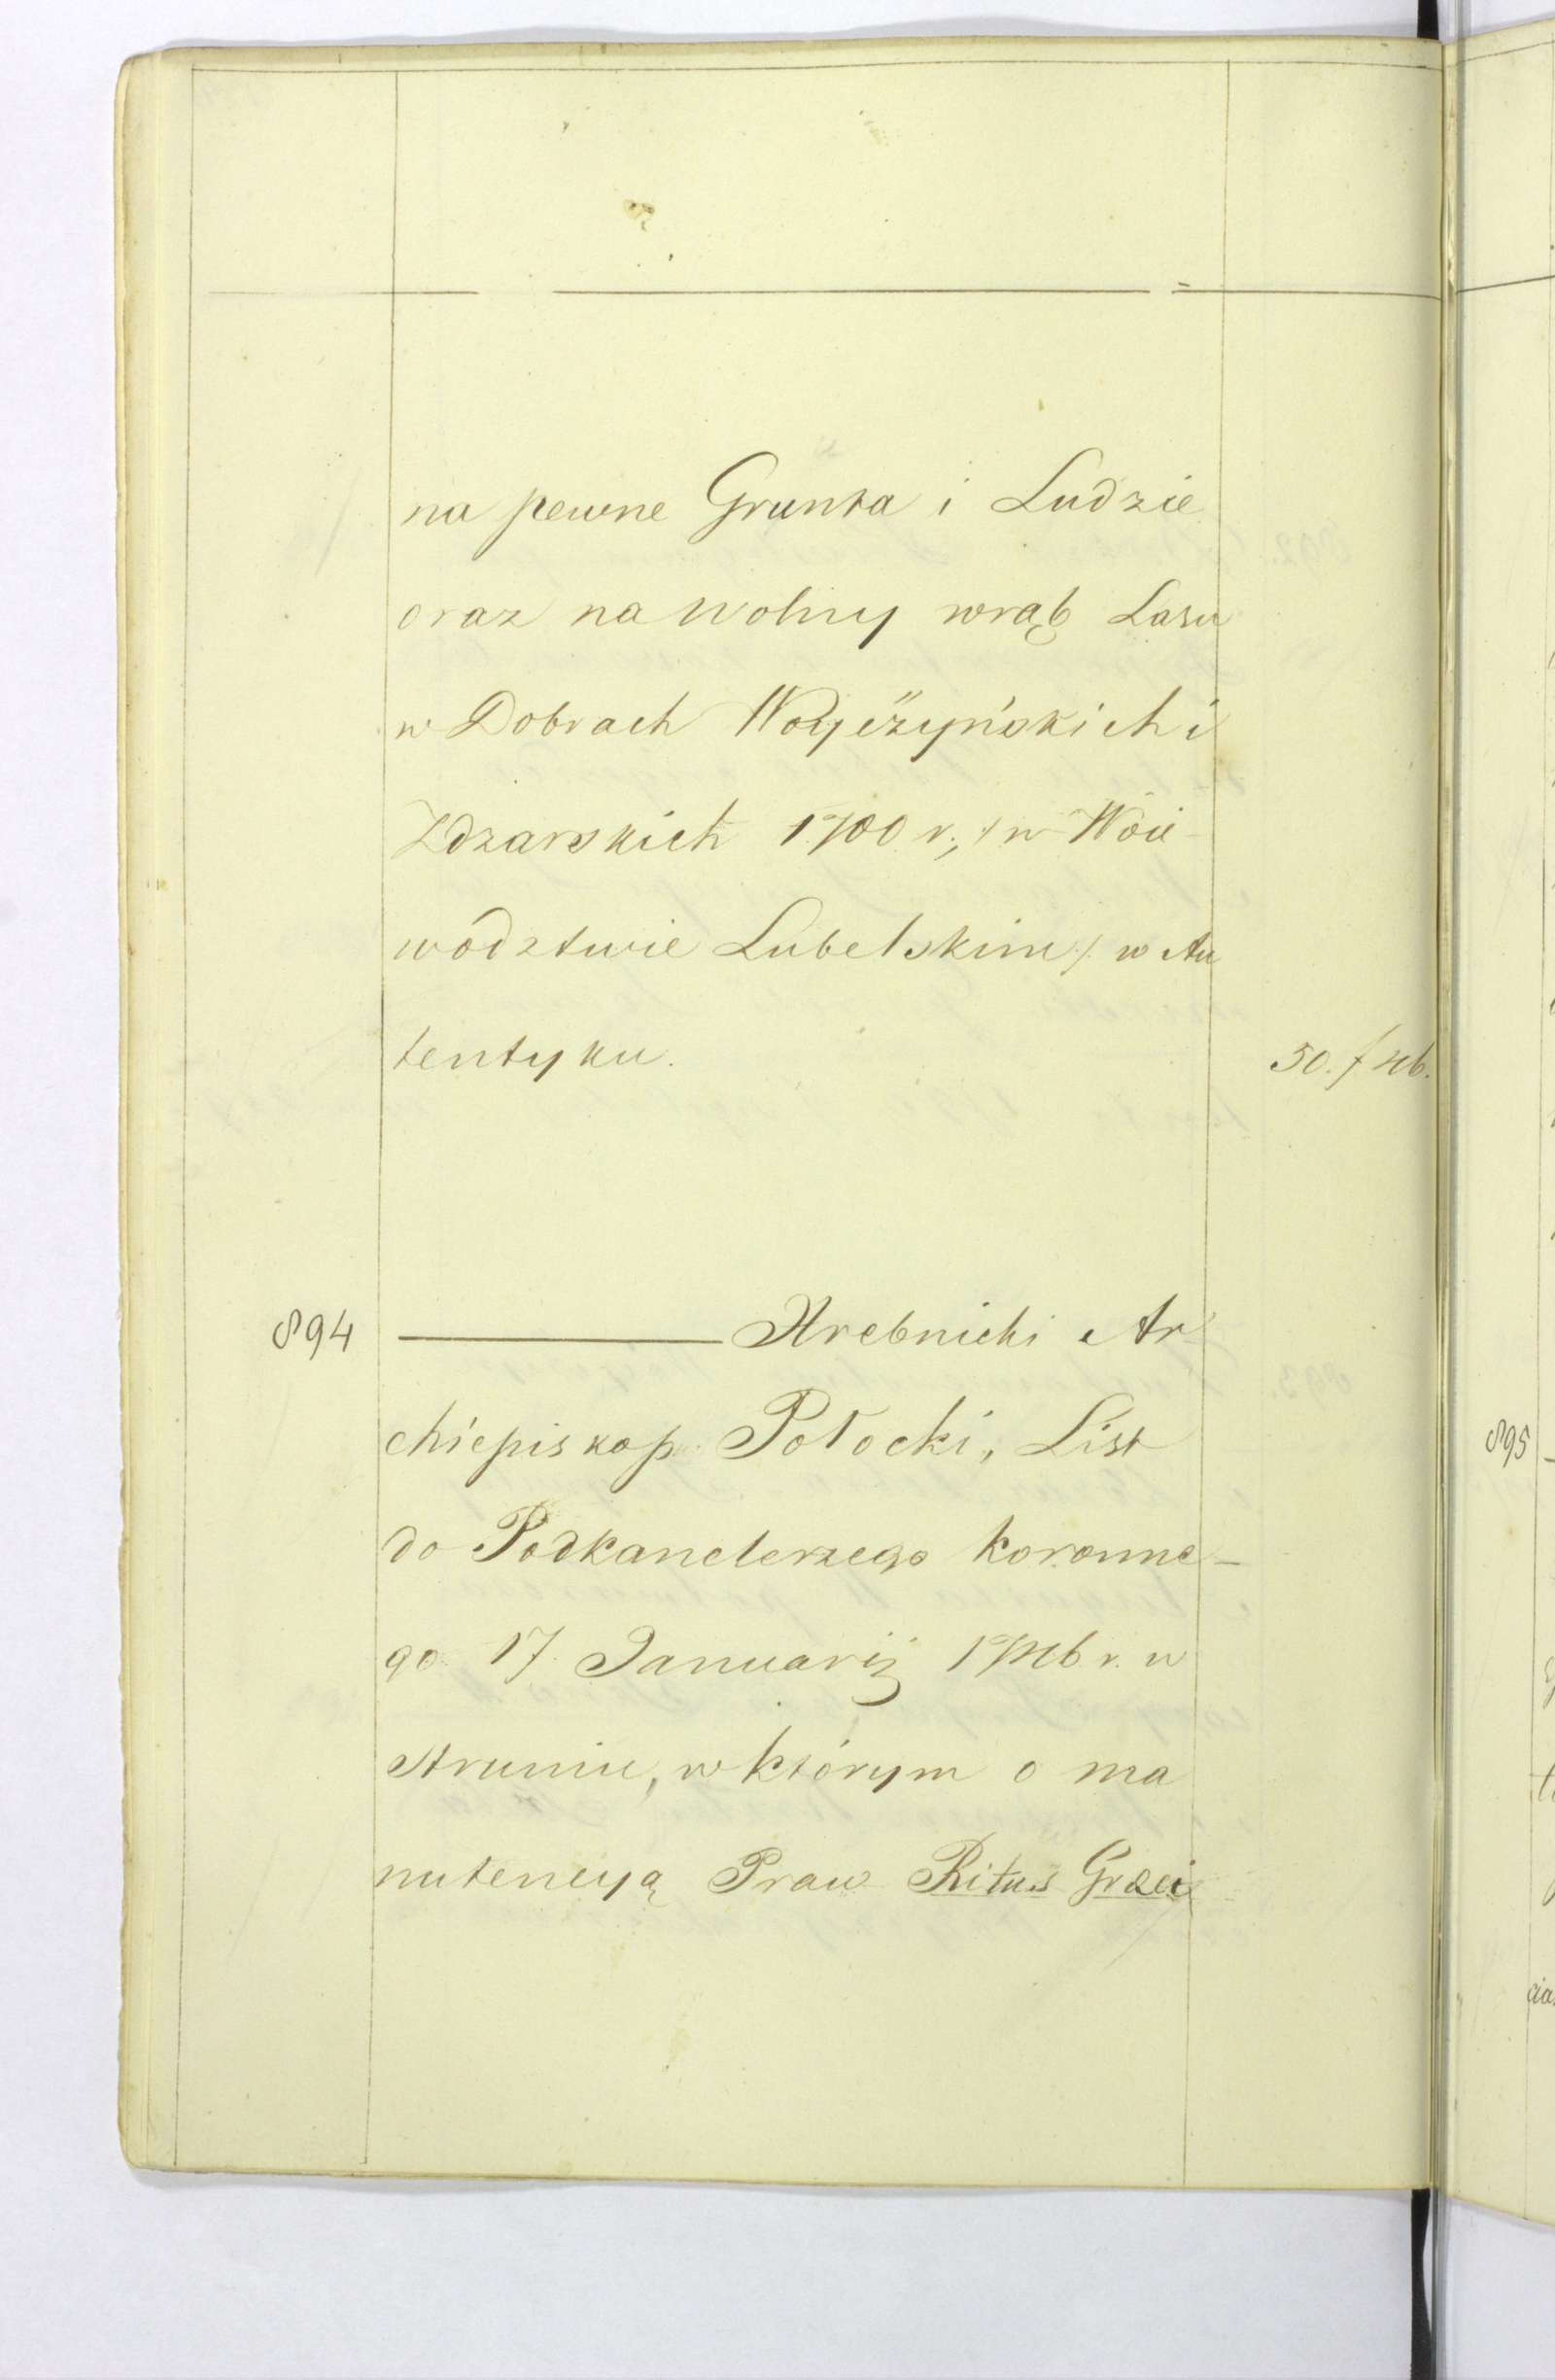 na pewne Grunta i Ludzie
oraz na wolny wrąb Lasu
w Dobrach i
Zdzarskich 1700 r., /: w Woie-
wództwie Lubelskim :/ w Au
tentyku.
50. f
894 ——— Hrebnicki Ar-
chiepiskop Połocki, List
do Podkanclerzego koronne-
go 17 Januarij r. w
Struniu, w którym o ma
nutencyą Praw Ritus Græci
895